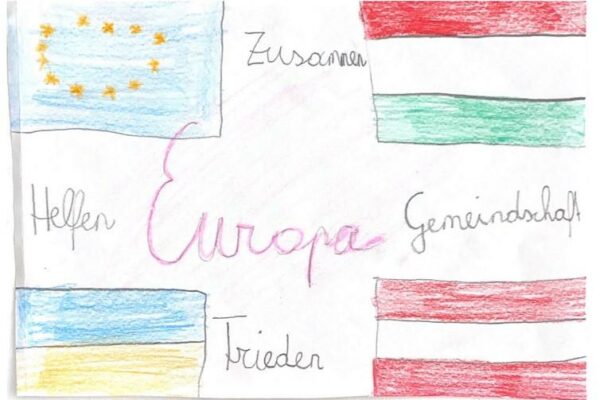 Zusammen
Helfen
Europa
Gemeindschaft
Frieden